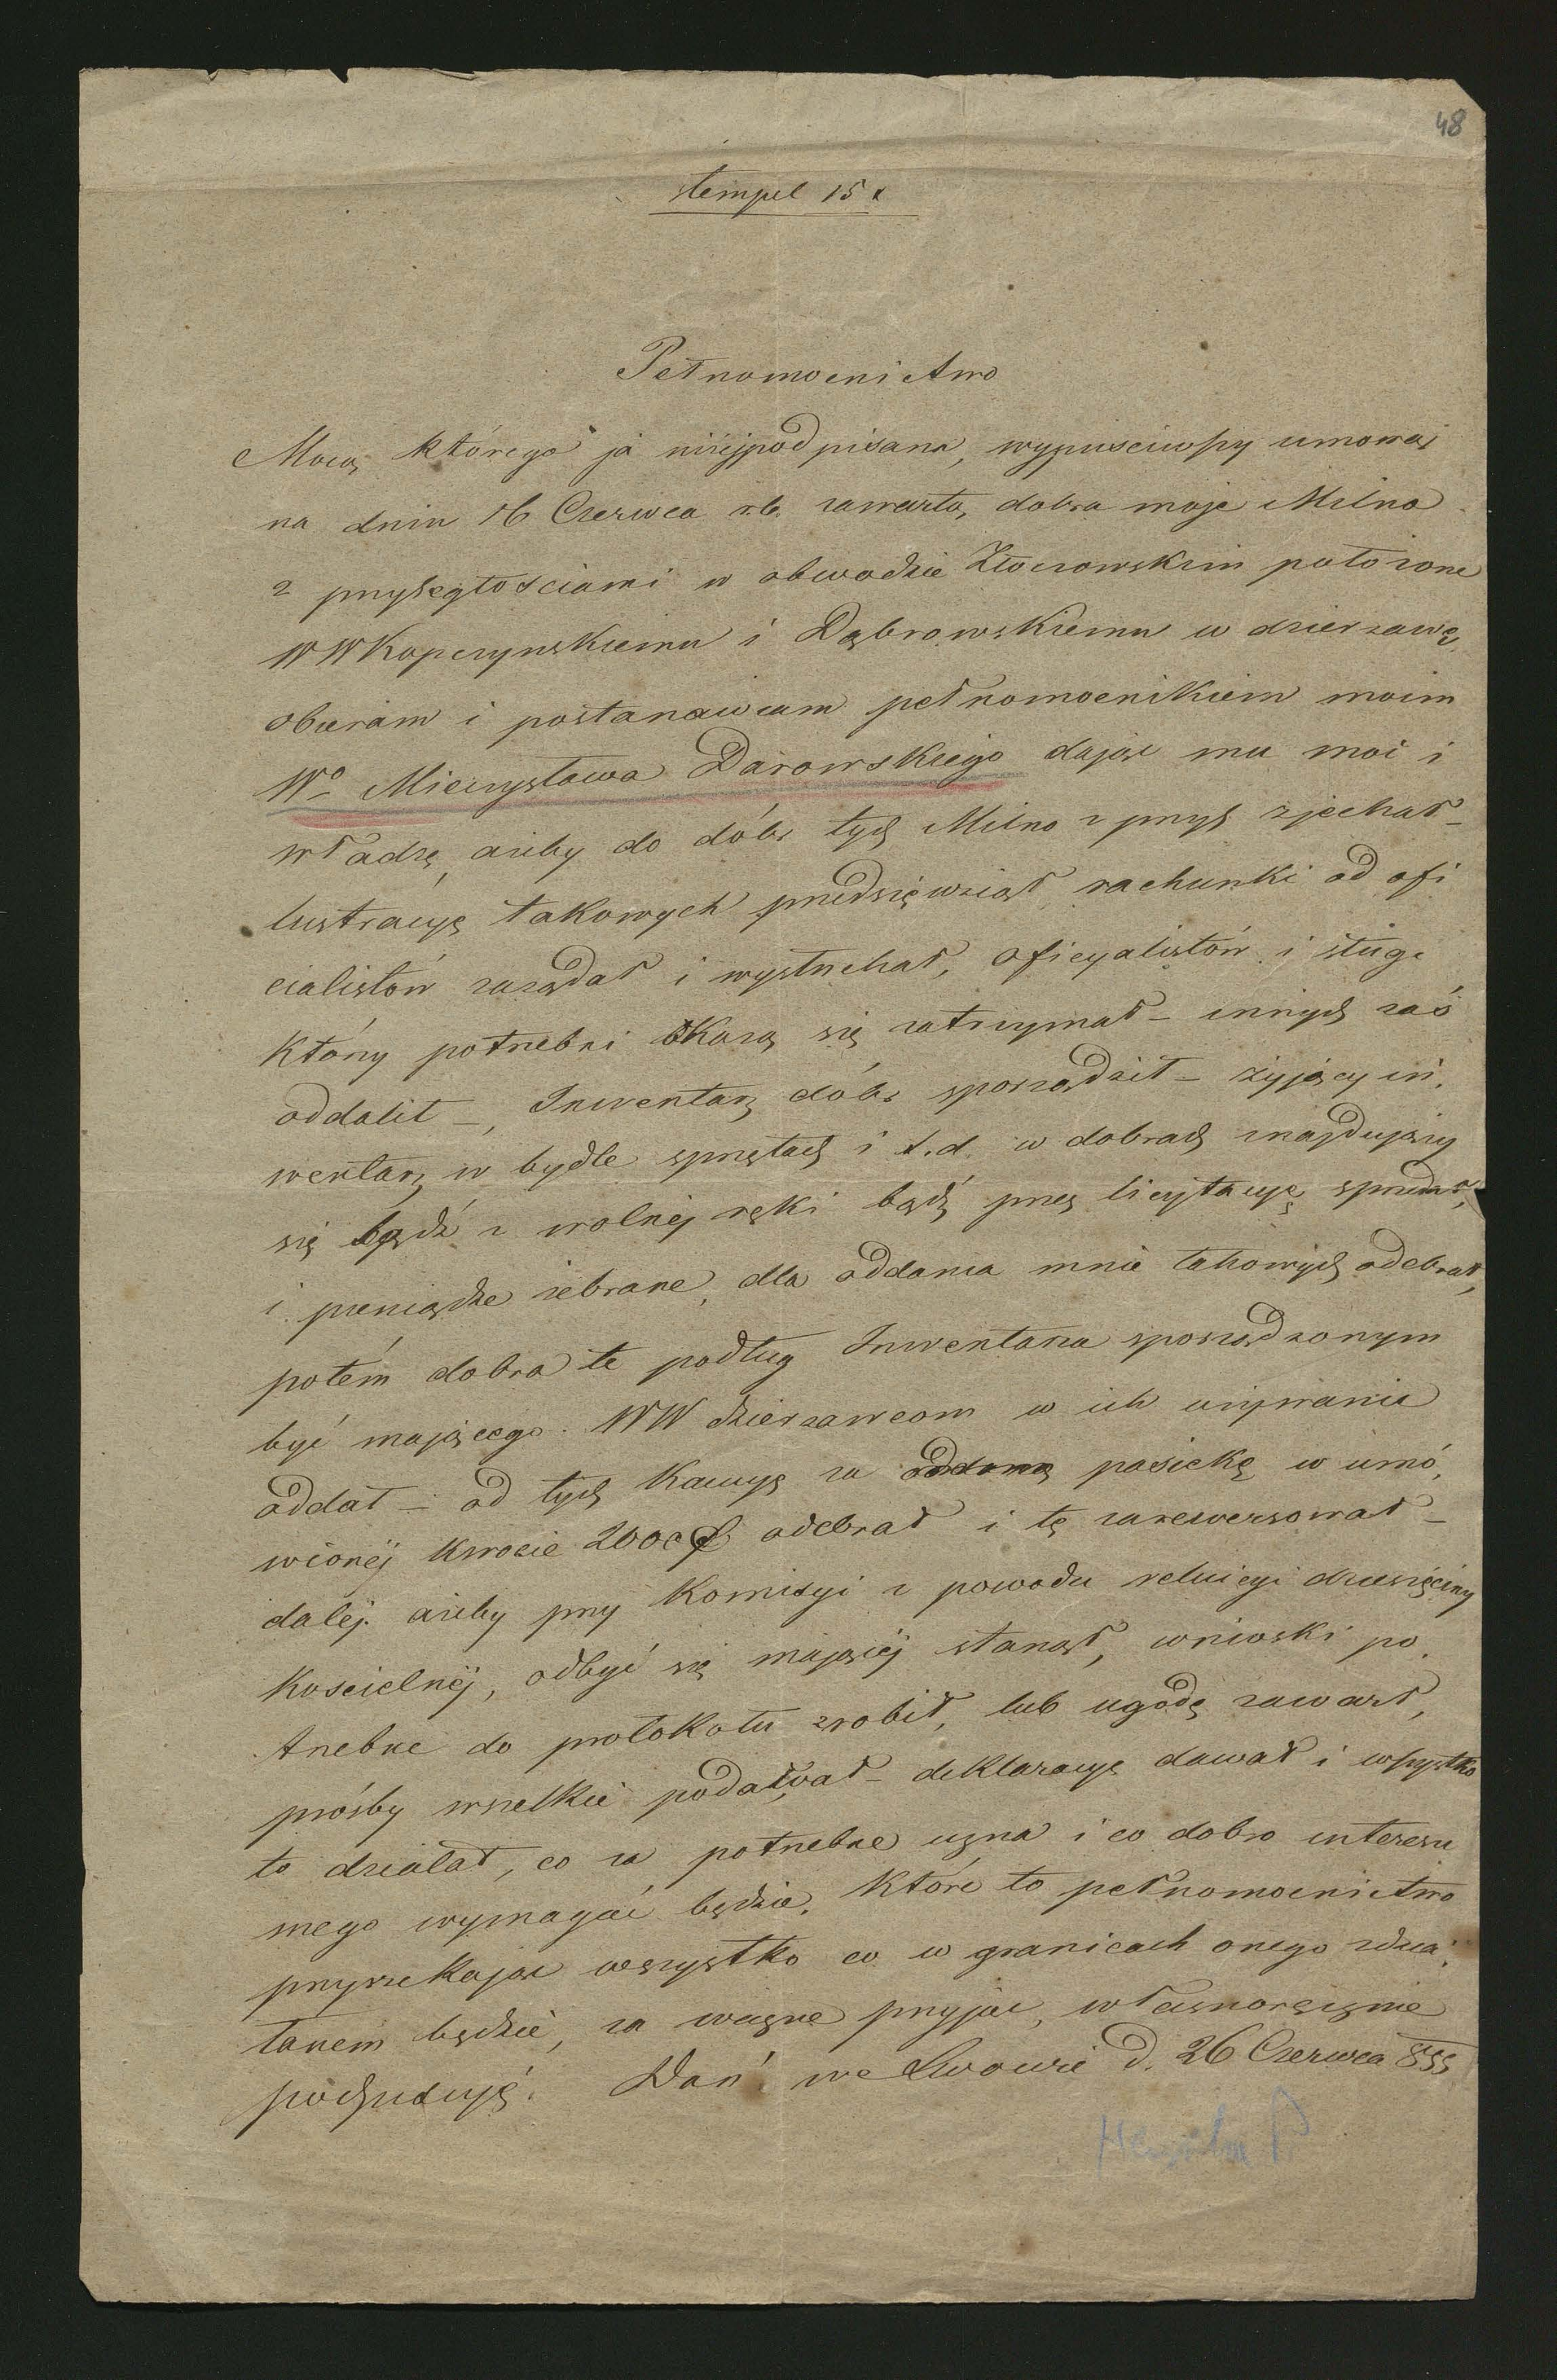 48
stempel 15 x
Pełnomocnictwo
Mocą którego ja niżejpodpisana, wypuściwszy umową
na dniu 16 Czerwca r.b. zawartą, dobra moje Milno
z przyległościami w obwodzie Złoczowskim położone
WW Kopczyńskiemu i Dąbrowskiemu w dzierżawę,
obieram i postanawiam pełnomocnikiem moim
Wo Mieczysława Darowskiego dając mu moc i
władzę, ażeby do dóbr tych Milno z przyl zjechał –
lustracyę takowych przedsięwziął, rachunki od ofi
cialistów zażądał i wysłuchał, oficyalistów i sługi
którzy potrzebni okażą się zatrzymał – innych zaś
oddalił –, Inwentarz dóbr sporządził – żyjący in,
wentarz w bydle sprzętach i t.d. w dobrach znajdujący
się bądź z wolnej ręki bądź przez licytacyę sprzedał,
i pieniądze zebrane, dla oddania mnie takowych odebrał,
potém dobra te podług Inwentarza sporządzonym
być mającego WW dzierżawcom w ich używanie
oddał – od tych Kaucyę za pasiekę w umó,
wionéj kwocie 2000 f odebrał i tę zarewersował –
daléj ażeby przy Komisyi z powodu reluicyi dziesięciny
Kościelnéj, odbyć się mającéj stanął, wnioski po,
trzebne do protokołu zrobił, lub ugodę zawarł,
prośby wszelkie podawał – deklaracye dawał i wszystko
to działał, co za potrzebne uzna i co dobro interesu
mego wymagać będzie. Które to pełnomocnictwo
przyrzekając wszystko co w granicach onego zdzia,
łanem będzie, za ważne przyjąć, własnoręcznie
podpisuję. Dan we Lwowie d. 26 Czerwca 855